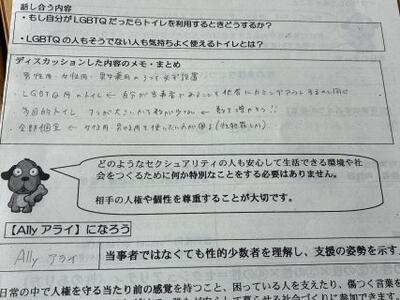 話し合う内容
・もし自分がLGBTQだったらトイレを利用するときどうするか?
・LGBTQの人もそうでない人も気持ちよく使えるトイレとは?
ディスカッションした内容のメモ・まとめ
・男性用・女性用・男女兼用の3つを必ず設置
・LGBTQ用のトイレ ← 自分が当事者であることを他者にカミングアウトするのと同じ
・多目的トイレ
・全部個室 ←
どのようなセクシュアリティの人も安心して生活できる環境や社
会をつくるために何か特別なことをする必要はありません。
相手の人権や個性を尊重することが大切です。
【Ally アライ】になろう
Ally アライ
当事者ではなくても性的少数者を理解し、支援の姿勢を示す
日常の中で人権を守る当たり前の感覚を持つこと、困っている人を支えたり、傷つく言葉を